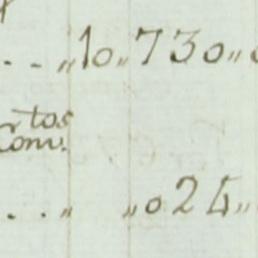 . . „10„730„
tos
Conv.
. . . „ „024„